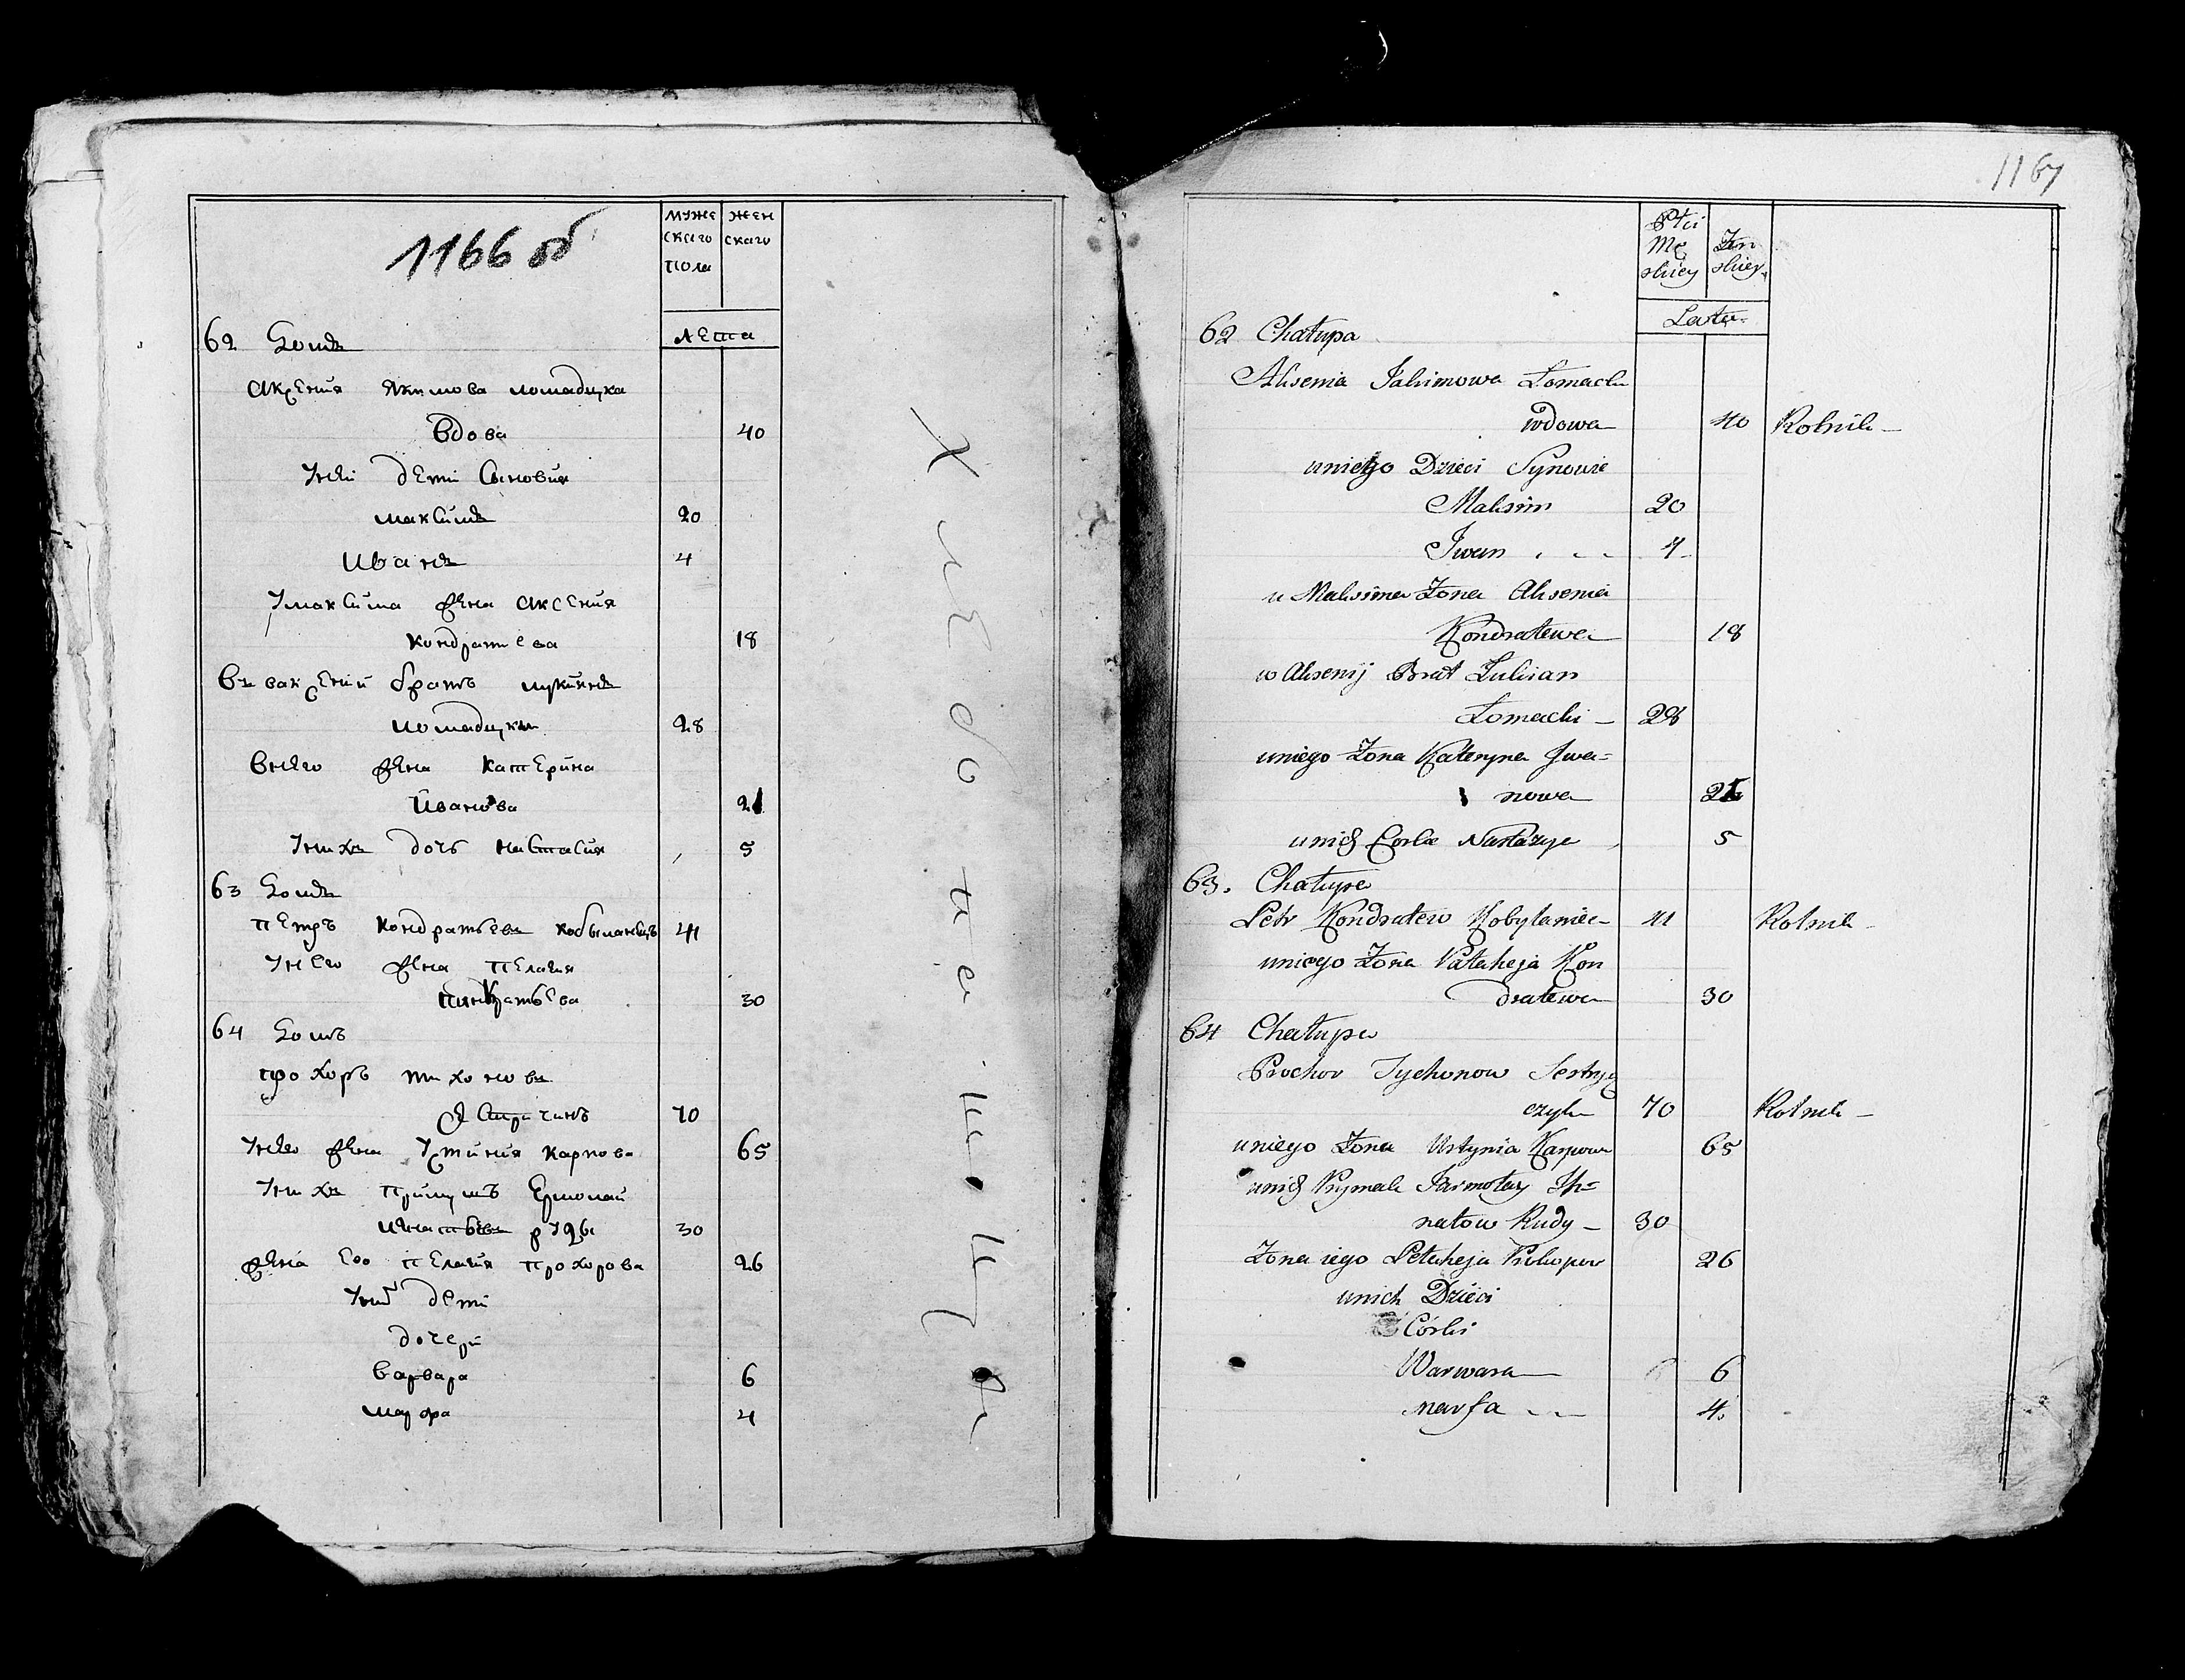 1166 об
муже
скаго
пола
жен
скаго
лета
62 Домъ
Аксения Якимова ломацука
Вдова 40
Унеи дети Сыновия
максимъ 20
Иванъ 4
Умаксима жена аксения
кондратева 18
Въ ваксении братъ лукиянъ
ломацуки 28
Внего жена катерина
Иванова 21
Унихъ дочь настасия 5
63 Домъ
петръ кондратьевъ кобыланецъ 41
Унего жена пелагия
панкратьева 30
64 Домъ
прохоръ тихоновъ
70
Унего жена Устиния карпова 65
Унихъ примутъ Ермолай
игнатьевъ руды 30
жена его пелагия прохорова 26
Униъ дети
дочери
варвара 6
марфа 4
Хлебопашецъ
1167
Płci
Mę
skiey
Żen
skiey
Lata
62 Chałupa
Aksenia Jakimowa Łomacka
wdowa 40 Rolnik
uniego Dzieci Synowie
Maksim 20
Iwan 4
u Maksima Żona Aksenia
Kondratewa 18
w Aksenij Brat Łukian
Łomacki 28
uniego Żona Kateryna Iwa=
nowa 21
unich Corka Nastazya 5
63. Chałupa
Petr Kondratew Kobylaniec 41 Rolnik
uniego Żona Pałaheja Kon
dratewa 30
64 Chałupa
Prochor Tychonow
czyk 70 Rolnik
uniego Żona Ustynia Karpowa 65
unich Prymak Jarmołay Ih=
natow Rudy 30
Żona iego Pełaheja Prokopow 26
unich Dzieci
Córki
Warwara 6
marfa 4